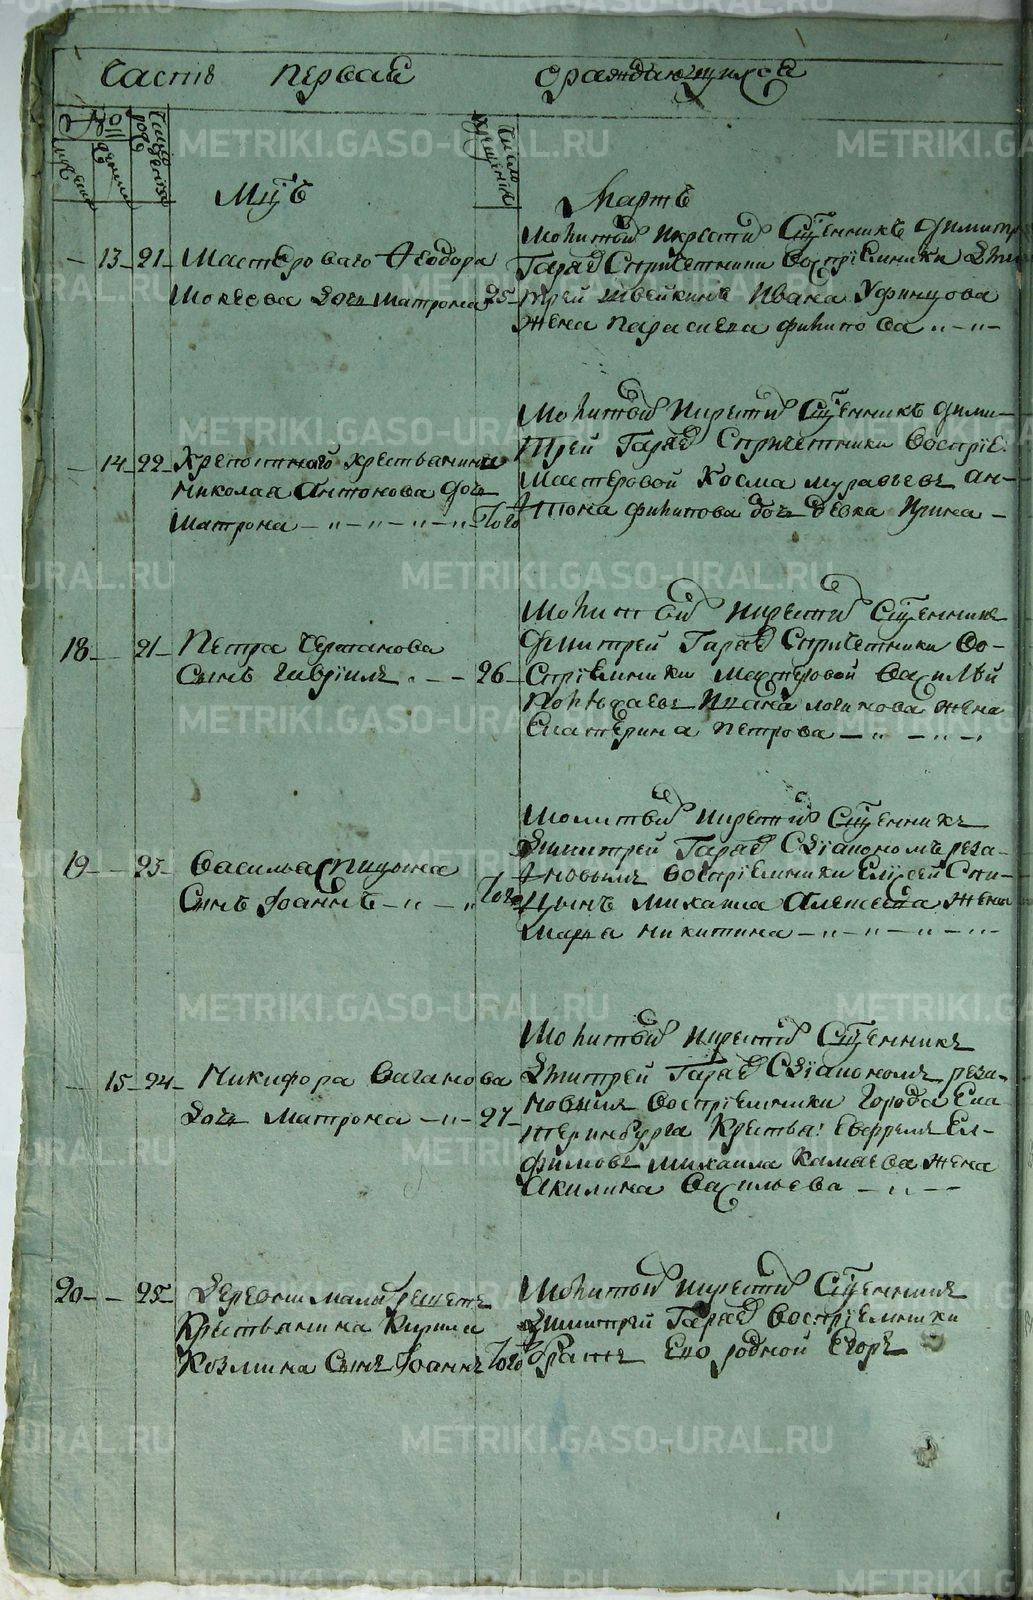 Часть первая о раждающихся
Число рождения
Число крещения
Мцъ Мартъ
13 21 Мастероваго Феодора
Мокеева дочь Матрона 25
Молитвой и крестил Сщенникъ Димитр
Гараев с причетники восприемники Дми
трей Швейкинъ Ивана Уфинцова
жена Параскева филипова
14 22 Крепостнаго крестьянина
Николая Антонова дочь
Матрона того
Молитвой и крестил Сщенникъ Дими
трей Гараев с причетники восприе:
Мастеровой Косма Муравьевъ Ан
тона филипова дочь девка Ирина
18 21 Петра Чертанова
сынъ Гавріилъ 26
Молитвой и крестил Сщенникъ
Димитрей Гараев с причетники во
спріемники Мастеровой Василей
Ивана Логинова жена
Екатерина Петрова
19 23 Василья Спицына
Сынъ Иоаннъ того
Молитвой и крестил Сщенникъ
Димитрей Гараев с діакономъ реза
новымъ воспріемники Елисей Спи
цынъ Михаила Алексеева жена
Марья Никитина
15 24 Никифора Ваганова
дочь Матрона 27
Молитвой и крестил Сщенникъ
Дмитрей Гараев с діакономъ реза
новымъ воспріемники города Ека
теринбурга крестья: Ел
фимовъ Михаила Камаева жена
Акилина Васильева
20 25 Деревни Малых Решетъ
Крестьянина Кирила
Козмина сынъ Иоаннъ того
Молитвой и крестил Сщенникъ
Димитрей Гараев воспріемники
братъ Ево родной Егоръ
METRIKI.GASO-URAL.RU